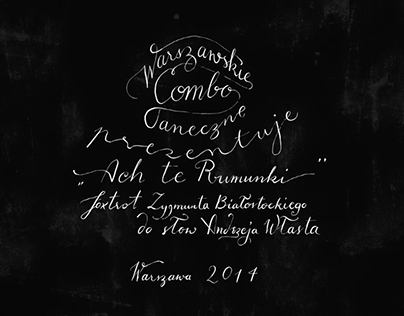 Warszawskie
Combo
Taneczne
prezentuje
„Ach te Rumunki”
foxtrot Zygmunta Białostockiego
do słów Andrzeja Własta
Warszawa 2014